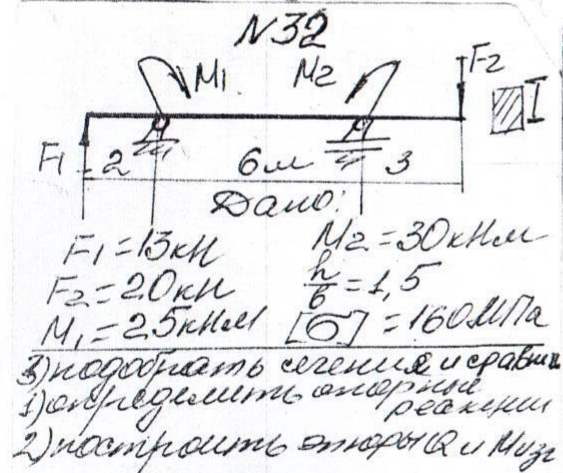 N32
M1 M2 F2
F1 2 6м 3
Дано:
F1=13кН M2=30кНм
F2=20кН h/b=1,5
M1=25кНм [σ]=160МПа
3) подобрать сечения и сравн
1) определить опорные
реакции
2) построить эпюры Q и Mизг